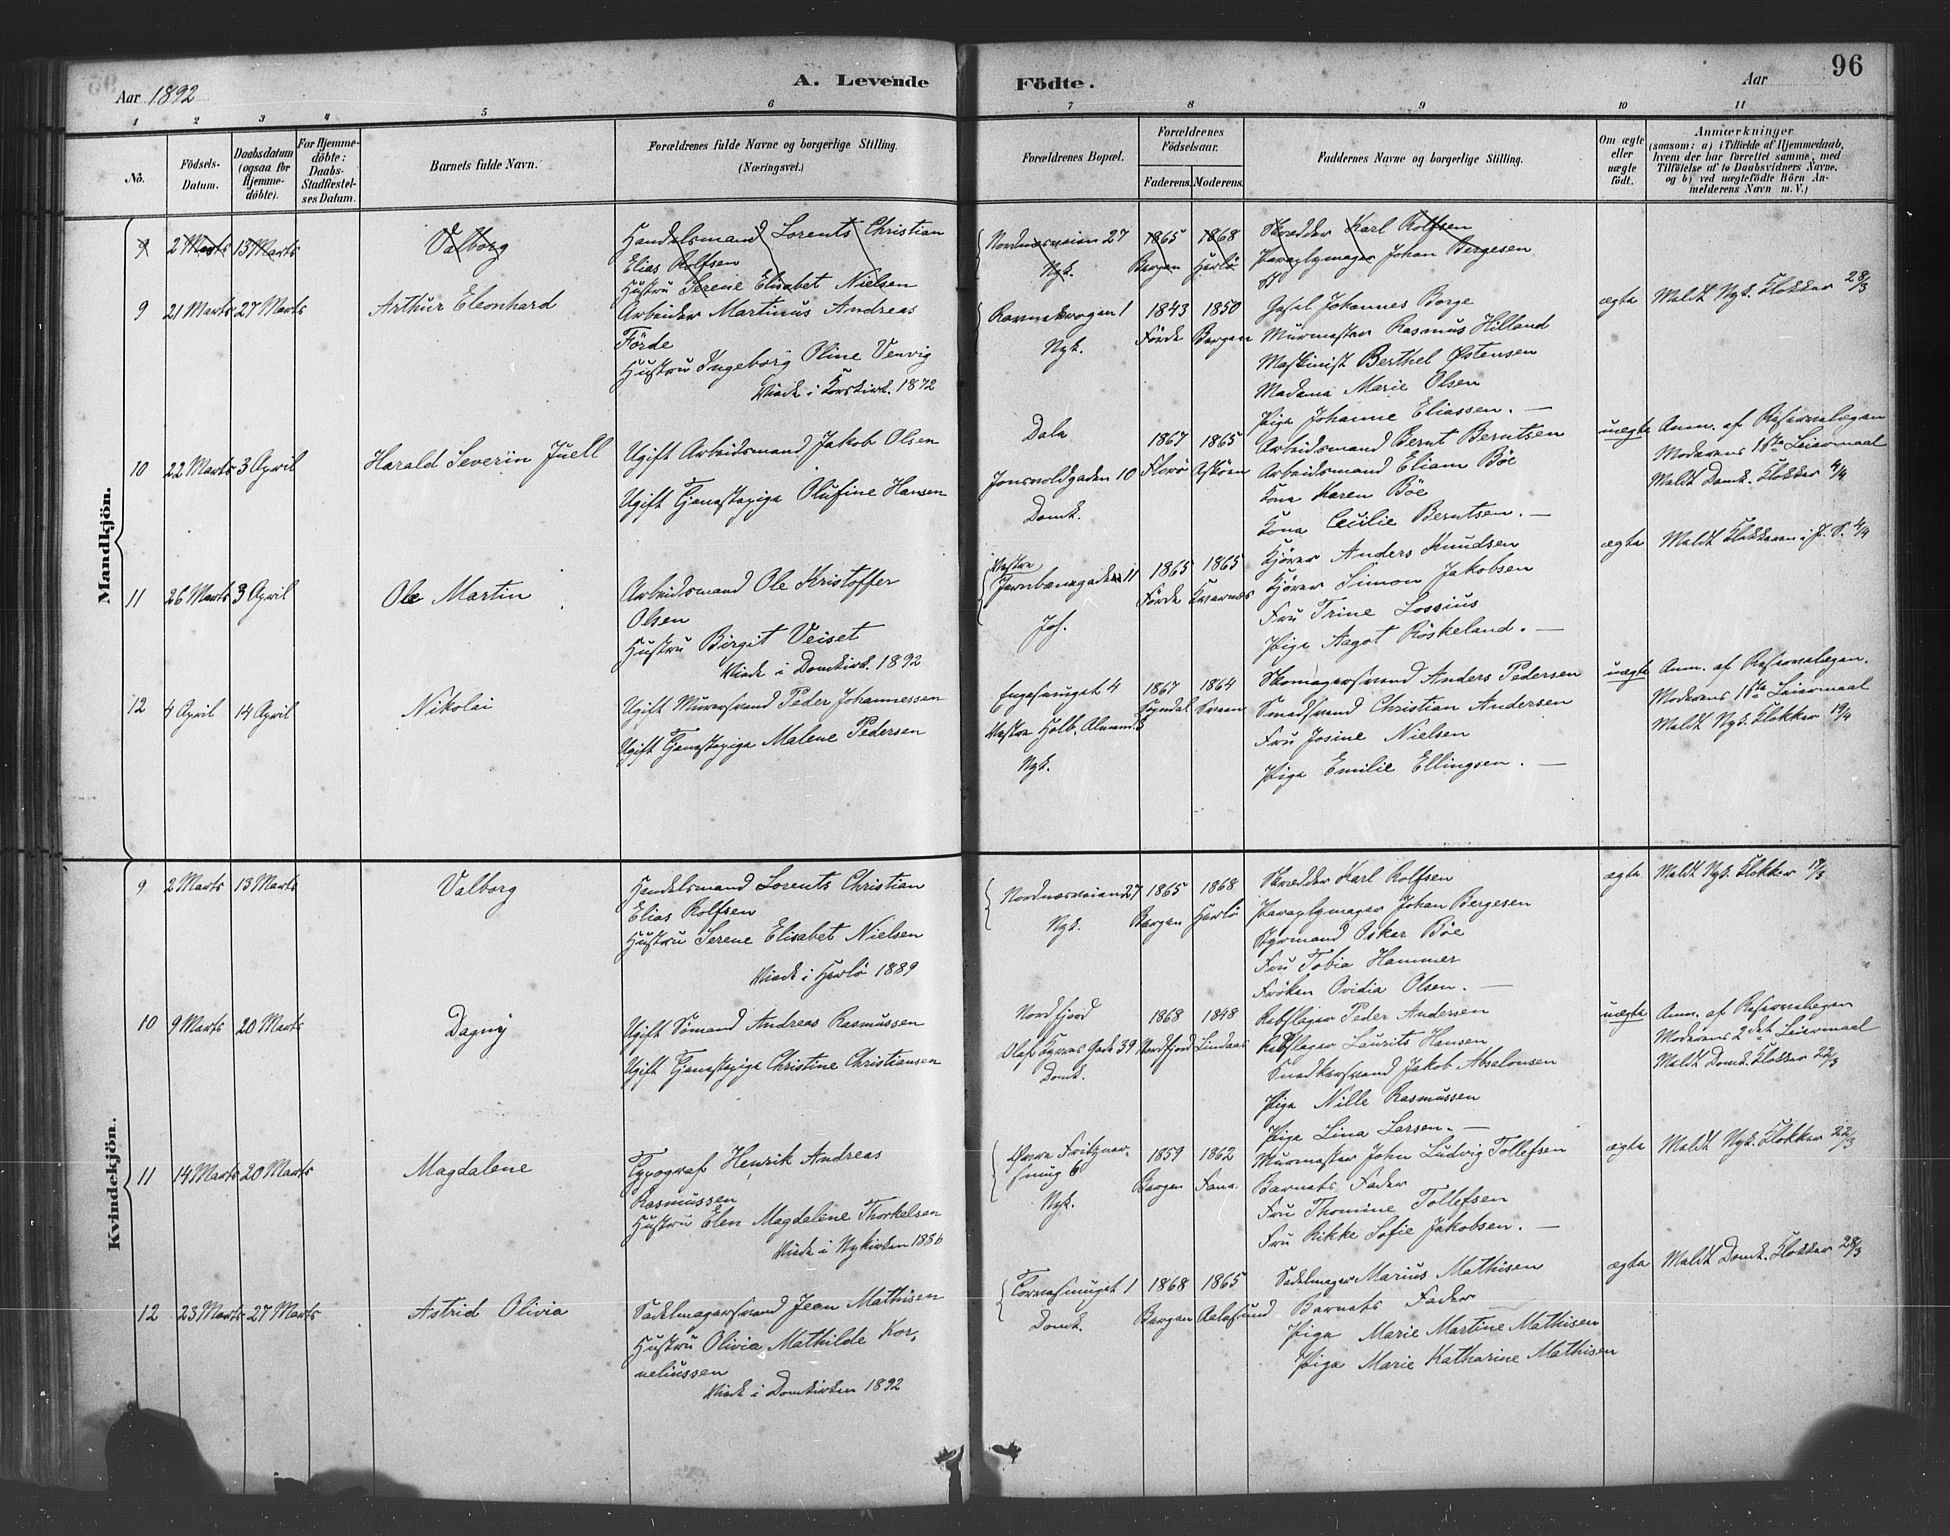 96
Aar 1892
A. Levende Födte.
Aar
1 2 3 4 5 6 7 8 9 10 11
No.
Födsels-Datum.
Daabsdatum (ogsaa for Hjemme-döbte).
For Hjemme-döbte: Daabs-Stadfæstel-ses Datum.
Barnets fulde Navn.
Forældrenes fulde Navne og borgerlige Stilling. (Næringsvei.)
Forældrenes Bopæl.
Forældrenes Födselsaar.
Faderens. Moderens.
Faddernes Navne og borgerlige Stilling.
Om ægte eller uægte födt.
Anmærkninger
(saasom: a) i Tilfælde af Hjemmedaab, hvem der har forrettet samme, med Tilföielse af to Daabsvidners Navne. og b) ved uægtefödte Börn An-melderens Navn m. V.)
Mandkjön.
9 2 Marts 13 Marts Valborg
Handelsmand Lorents Christian
Elias Rolfsen
Hustru Serene Elisabet Nielsen
Nordnesveien 27
Nyk.
1865 1868
Bergen Herlö
Skrædder Karl Rolfsen
Paraplymager Johan Bergesen
9 21 Marts 27 Marts Arthur Eleonhard
Arbeider Martinus Andreas
Förde
Hustru Ingeborg Oline Venvig
Viede i Korskirk. 1872
Ravnekrogen 1
Nyk.
1843 1850
Förde Bergen
Gesel Johannes Borge
Murmester Rasmus Hilland
Maskinist Berthel Østensen
Madame Marie Olsen
Pige Johanne Eliassen. —
ægte
Meldt Nyk. Klokker 28/3
10 22 Marts 3 April Harald Severin Juell
Ugift Arbeidsmand Jakob Olsen
Ugift Tjenestepige Olufine Hansen
Dale
Jonsvoldgaden 10
Domk.
1867 1865
Florö Askøen
Arbeidsmand Bernt Berntsen
Arbeidsmand Eliam Böe
Kone Karen Böe
Kone Cecilie Berntsen. —
uægte
Anm. af Reservelægen
Moderens 1ste Leiermaal
Meldt Domk. Klokker 4/4
11 26 Marts 3 April Ole Martin
Arbeidsmand Ole Kristoffer
Olsen
Hustru Birgit Veiset
Viede i Domkirk. 1892
Vestre
Jernbanegaden 11
Joh.
1865 1865
Förde Kvernæs
Kjörer Anders Knudsen
Kjörer Simon Jakobsen
Fru Trine Lossius
Pige Aagot Röskeland. —
ægte
Meldt Klokkeren i J. S. 4/4
12 4 April 14 April Nikolai
Ugift Murersvend Peder Johannessen
Ugift Tjenestepige Malene Pedersen
Engesmuget 4
Vestre Holb. Almend.
Nyk.
1867 1864
Sogndal
Skomagersvend Anders Pedersen
Smedsvend Christian Andersen
Fru Josine Nielsen
Pige Emilie Ellingsen. —
uægte
Anm. af Reservelægen.
Moderens 1ste Leiermaal
Meldt Nyk. Klokker 19/4
Kvindekjön.
9 2 Marts 13 Marts Valborg
Handelsmand Lorents Christian
Elias Rolfsen
Hustru Serene Elisabet Nielsen
Viede i Herlö 1889
Nordnesveien 27
Nyk.
1865 1868
Bergen Herlö
Skrædder Karl Rolfsen
Paraplymager Johan Bergesen
Styrmand Oskar Böe
Fru Tobia Hammer
Fröken Ovidia Olsen. —
ægte
Meldt Nyk. Klokker
10 9 Marts 20 Marts Dagny
Ugift Sömand Andreas Rasmussen
Ugift Tjenestepige Christine Christiansen
Nordfjord
Olaf Kyrres Gade 39
Domk.
1868 1848
Nordfjord Lindaas
Rebslager Peder Andersen
Rebslager Laurits Hansen
Snedkersvend Jakob Absalonsen
Pige Nille Rasmussen
Pige Lina Larsen. —
uægte
Anm. af Reservelægen
Moderens 2det Leiermaal
Meldt Domk. Klokker 22/3
11 14 Marts 20 Marts Magdalene
Typograf Henrik Andreas
Rasmussen
Hustru Elen Magdalene Thorkelsen
Viede i Nykirken 1886
Øvre Fritzner-
smug 6
Nyk.
1859 1862
Bergen Fana.
Murmester John Ludvig Tollefsen
Barnets Fader
Fru Thomine Tollefsen
Fru Rikke Sofie Jakobsen. —
ægte
Meldt Nyk. Klokker 22/3
12 23 Marts 27 Marts Astrid Olivia
Sadelmagersvend Jean Mathisen
Hustru Olivia Mathilde Kor-
neliussen
Viede i Domkirken 1892
Domk.
1868 1865
Bergen Aalesund
Sadelmager Marius Mathisen
Barnets Fader
Pige Marie Martine Mathisen
Pige Marie Katharine Mathisen
ægte
Meldt Domk. Klokker 28/3